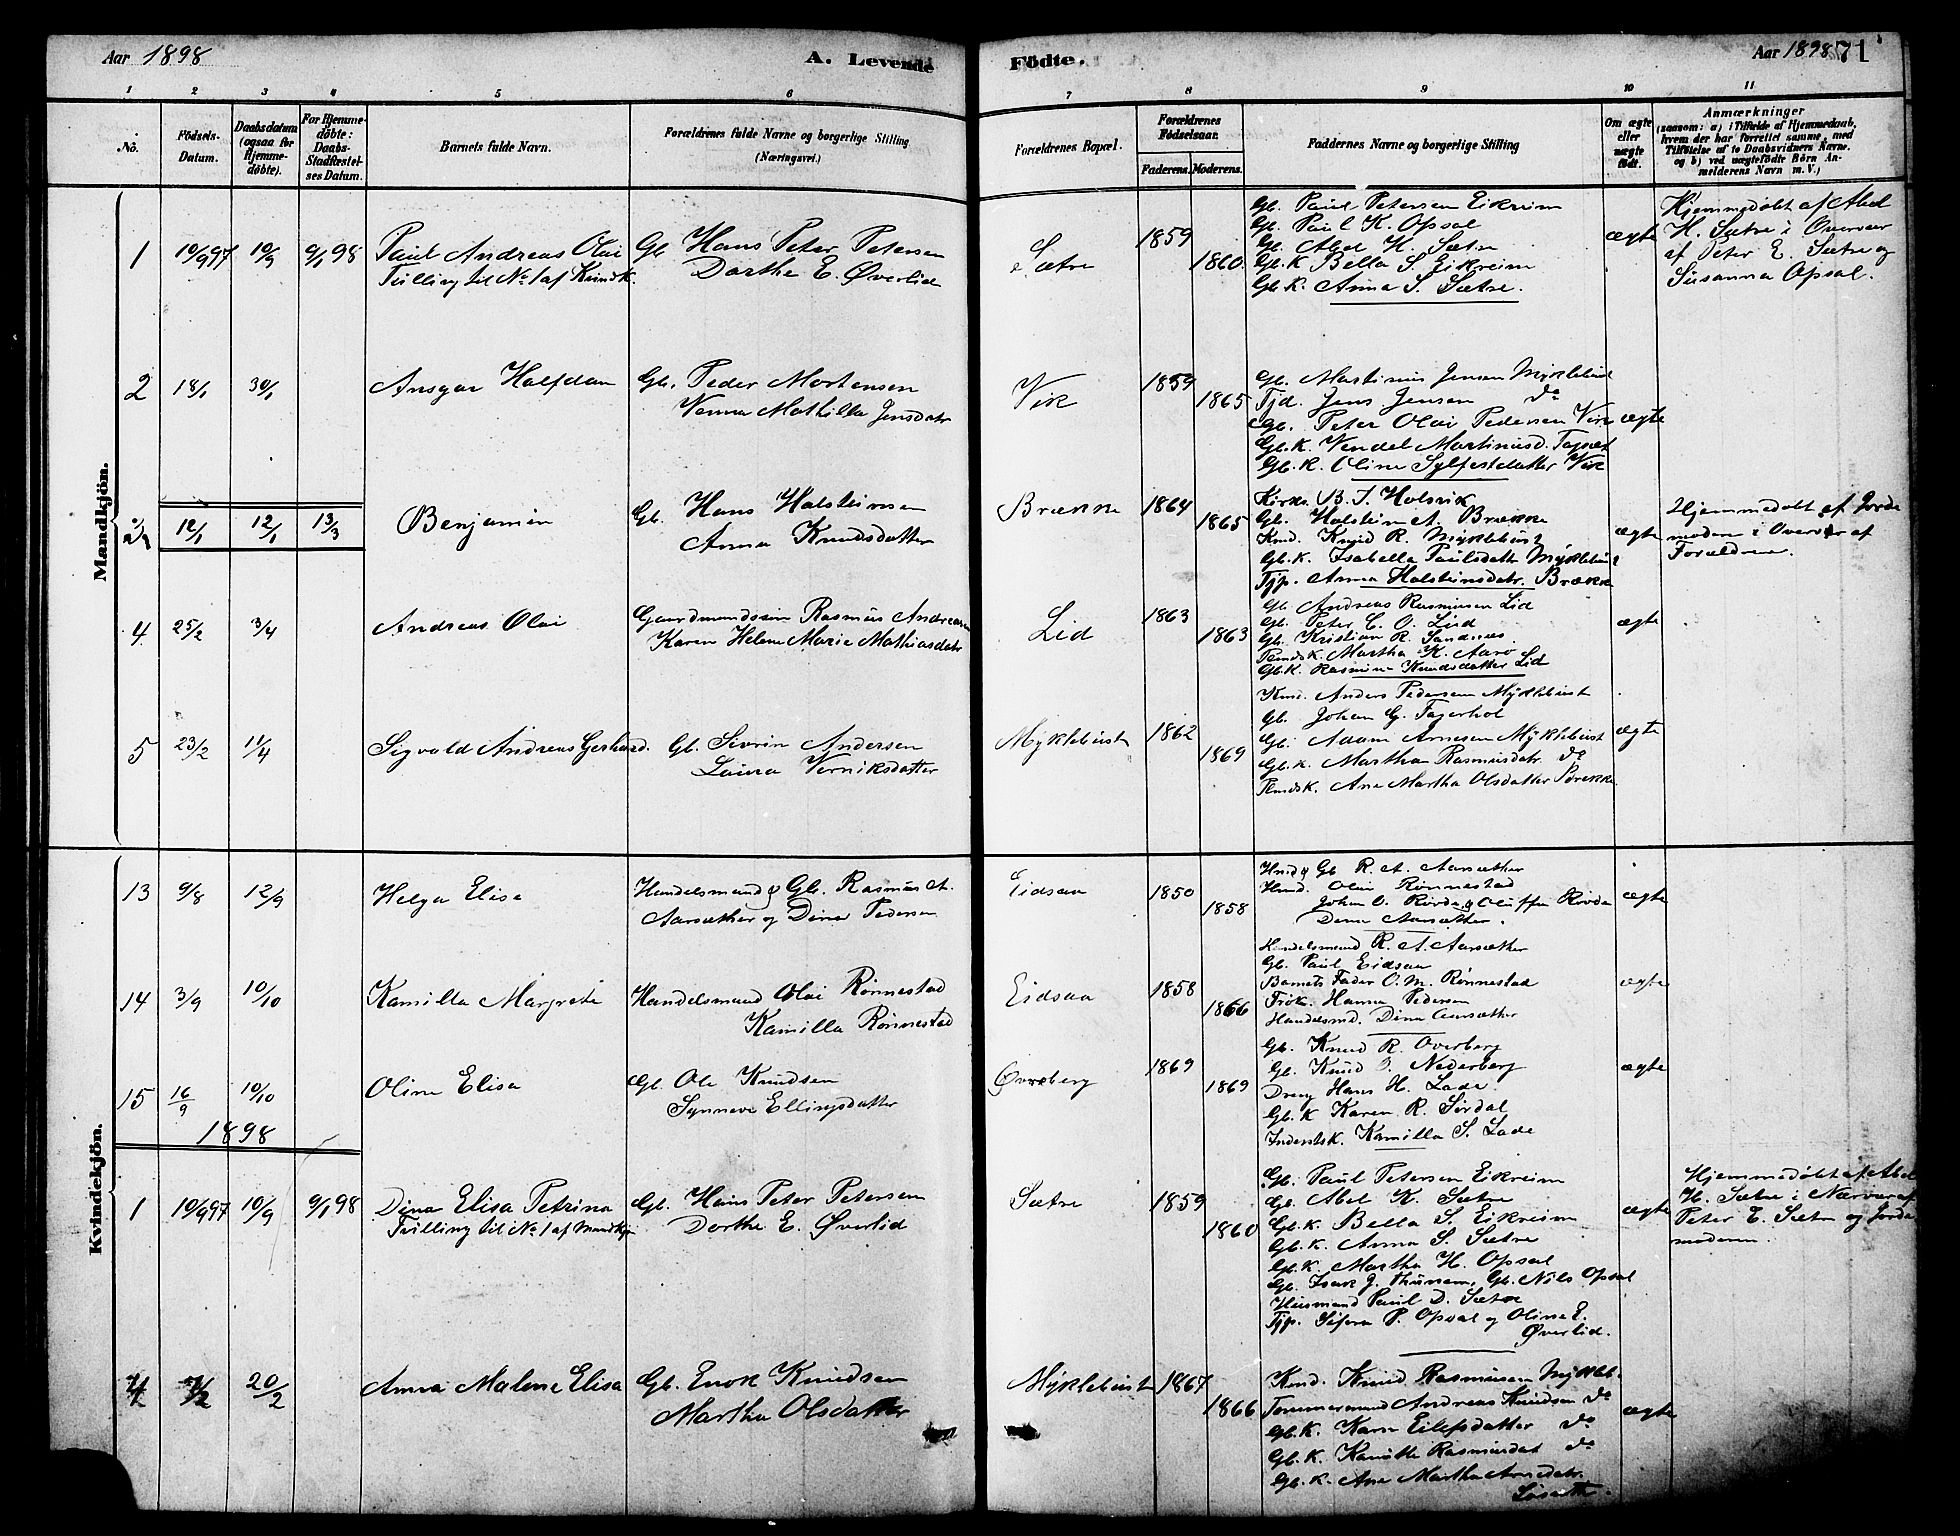 Aar 1898
A. Levende Födte.
Aar 1898
71
1 2 3 4 5 6 7 8 9 10 11
No.
Födsels-Datum.
Daabsdatum (ogsaa for Hjemmedøbte).
For Hjemmedøbte: Daabs-Stadfæstelses Datum.
Barnets fulde Navn.
Forældrenes fulde Navne og borgerlige Stilling (Næringsvei.)
Forældrenes Bopæl.
Forældrenes Födselsaar.
Faderens. Moderens.
Faddernes Navne og borgerlige Stilling
Om ægte eller uægte födt.
Anmærkninger
(saasom: a) i Tilfælde af Hjemmedaab, hvem der har forrettet samme, med Tilföielse af to Daabsvidners Navne, og b) ved uægtefödte Börn Anmelderens Navn m. V.)
Mandkjön.
1 10/9 97 10/9 9/1 98 Paul Andreas Olai
Tvilling til No 1 af Kvindk.
Gb. Hans Peter Petersen
Dorthe E. Øverlid
Sætre 1859 1860
Gb. Paul Petersen Eikreim
Gb. Paul K. Opsal
Gb. Abel H. Sætre
Gb.K. Bella S. Eikreim
Gb.K. Anna S. Sætre.
ægte
Hjemmedøbt af Abel
H. Sætre i Overvær
af Peter E. Sætre og
Susanna Opsal.
2 18/1 30/1 Ansgar Halfdan
Gb. Peder Mortensen
Verma Mathilda Jensdatr
Vik 1859 1865
Gb. Martinus Jensen Myklebust
Tjd. Jens Jensen do
Gb. Peter Olai Pedersen Vik
Gb.K. Vendel Martinusd.
Gb.K. Oline Sylfestdatter Vik
ægte
12/1 12/1 13/3 Benjamin
Gb. Hans Holsteinsen
Anna Knudsdatter
Brække 1864 1865
Kirks. B. J. Holsvik
Gb. Holstein A. Brække
Kmd. Knud R. Myklebust
Gb.K. Isabella Paulsdatter Myklebust
Tjp. Anna Holsteinsdatr. Brække
ægte
Hjemmedøbt af Jorde
moderen i Overvær af
Forældrene.
4 25/2 3/4 Andreas Olai
Gaardmandssøn Rasmus Andreasen
Karen Helene Marie Mathiasdatr
Lid 1863 1863
Gb. Andreas Rasmusen Lid
Gb. Peter C. O. Lid
Gb. Kristian R. Sandnes
Pmdsk. Martha K. Aarø
Gb.K. Rasmine Knudsdatter Lid
ægte
5 23/2 11/4 Sigvald Andreas Gerhard.
Gb. Sivrin Andersen
Laura Verniksdatter
Myklebust 1862 1869
Kmd. Anders Pedersen Myklebust
Gb. Johan G. Fagerhol
Gb. Adam Arnesen Myklebust
Gb.K. Martha Rasmusdatr. do
Pmdsk. Ane Martha Olsdatter Brække
ægte
Kvindekjön.
13 9/8 12/9 Helga Elise
Handelsmand & Gb. Rasmus A.
Aarsæther og Dina Pedersen
Eidsaa 1850 1858
Hmd & Gb R. A. Aarsæther
Hmd. Olai Rønnestad
Johan O. Røvde & Oluffa Røvde
Dina Aarsæther.
ægte
14 3/9 10/10 Kamilla Margrete
Handelsmand Olai Rönnestad
Kamilla Rønnestad
Eidsaa 1858 1866
Handelsmand R. A. Aarsæther
Gb. Paul Eidsaa
Barnets Fader O. M. Rønnestad
Frøk. Hanna Pedersen
Handelsmd. Dina Aarsæther
ægte
15 16/9 10/10 Oline Elisa
Gb. Ole Knudsen
Synneve Ellingsdatter
Øvreberg 1869 1869
Gb. Knud R. Overberg
Gb. Knud J. Nederberg
Dreng Hans H. Lade.
Gb.K Karen R. Sørdal
Inderstsk. Kamilla S. Lade
ægte
1898
1 10/9 97 10/9 9/1 98 Dina Elisa Petrina
Tvilling til No 1 af Mandkjøn
Gb. Hans Peter Petersen
Dorthe E. Øverlid
Sætre 1859 1860
Gb. Paul Petersen Eikreim
Gb. Abel K. Sætre
Gb.K. Bella S. Eikreim
Gb.K. Anna S. Sætre
Gb.K. Martha H. Opsal
Gb. Isak J. Thunem, Gb. Nils Opsal
Husmand Paul D. Sætre
Tjp. Sifera P. Opsal og Oline E.
Øverlid.
ægte
Hjemmedøbt af Abel
H. Sætre i Nærvær af
Peter E. Sætre og Jorde
moderen.
7/2 20/2 Anna Malene Elisa
Gb. Enok Knudsen
Martha Olsdatter
Myklebust 1867 1866
Kmd. Knud Rasmusen Mykleb.
Tømmermand Andreas Knudsen do
Gb.K. Karen Eilefsdatter do
Gb.K. Rasmusdat do
Gb.K. Ane Martha Arnedatr.
ægte